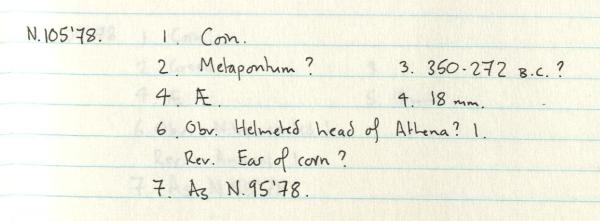 N.105'78. 1. Coin.
2. Metapontum ? 3. 350-272 B.C. ?
4. Æ. 4. 18 mm.
6. Obv. Helmeted head of Athena? l.
Rev. Ear of corn ?
7. As N.95'78.